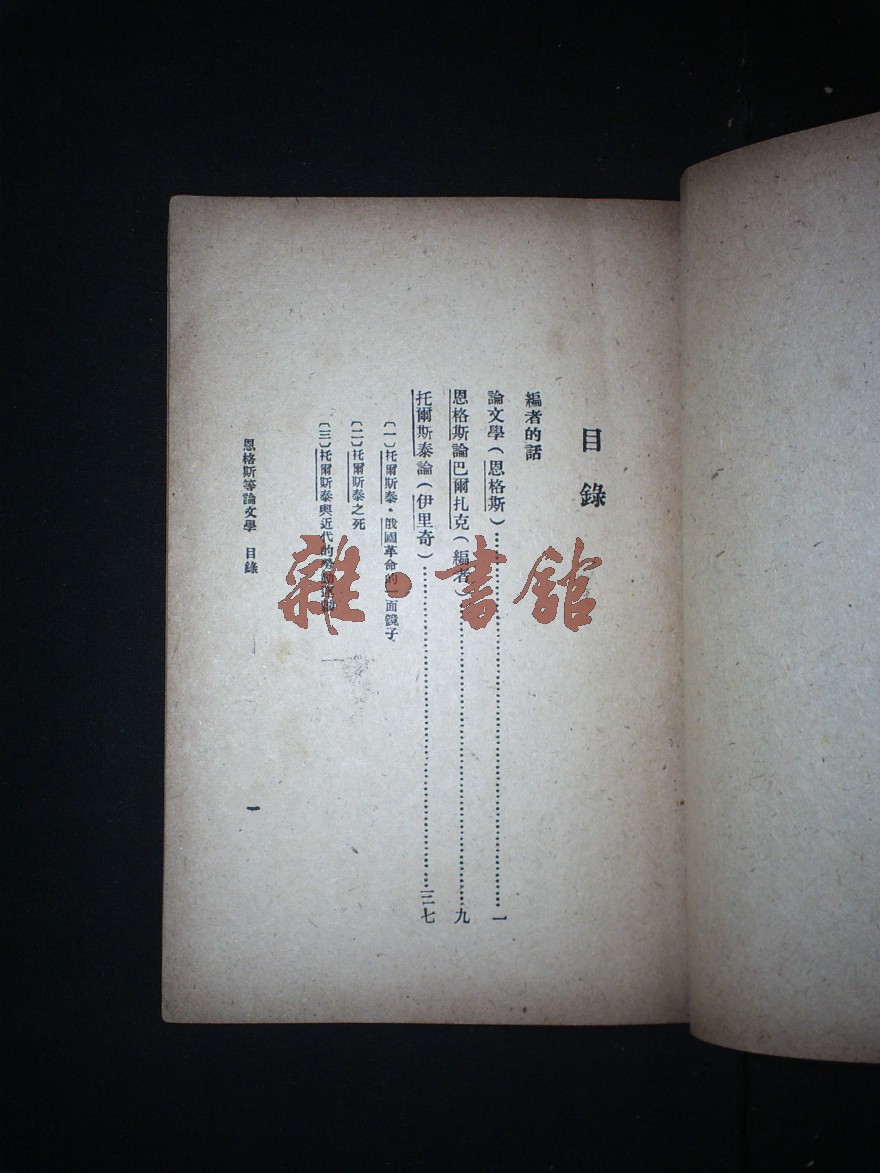 目錄
編者的話
論文學(恩格斯)……一
恩格斯論巴爾扎克(編者)……九
托爾斯泰論(伊里奇)……二七
〔一〕托爾斯泰・俄國革命的一面鏡子
〔二〕托爾斯泰之死
〔三〕托爾斯泰與近代的勞動運動
恩格斯等論文學 目錄 一
雜・書館